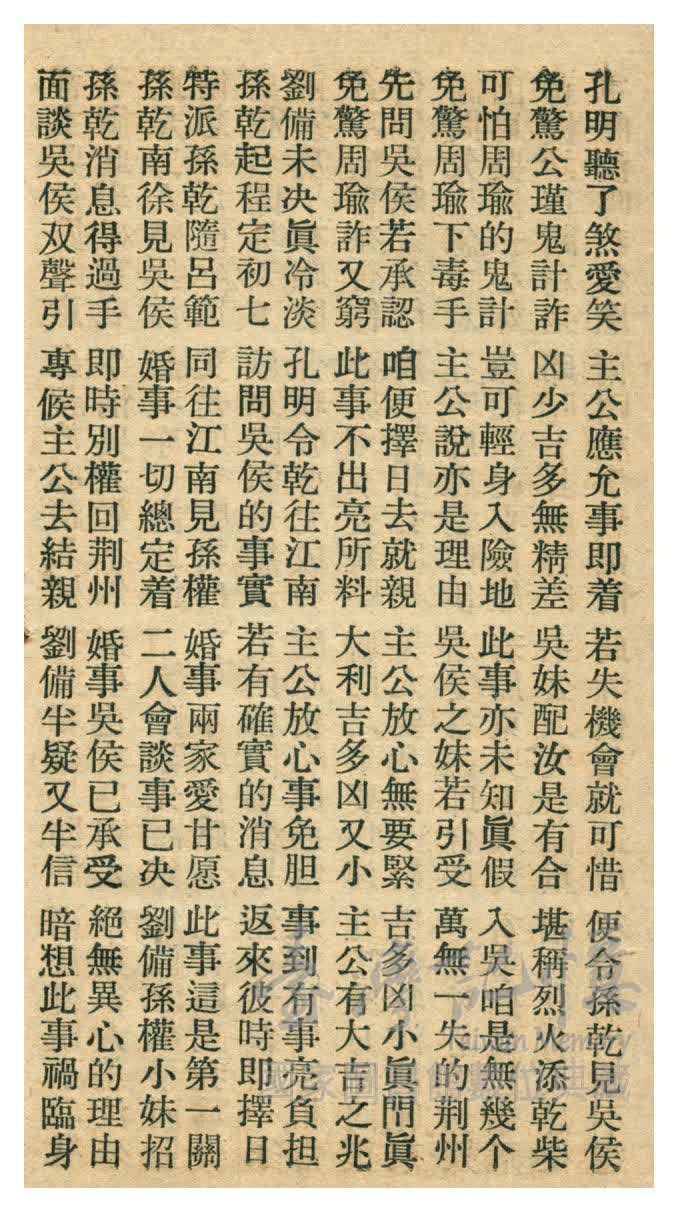 孔明聽了煞愛笑 主公應允事即着 若失機會就可惜 便令孫乾見吳侯
免驚公瑾鬼計詐 凶少吉多無精差 吳妹配汝是有合 堪稱烈火添乾柴
可怕周瑜的鬼計 豈可輕身入險地 此事亦未知眞假 入吳咱是無幾个
免驚周瑜下毒手 主公說亦是理由 吳侯之妹若引受 萬無一失的荆州
先問吳侯若承認 咱便擇日去就親 主公放心無要緊 吉多凶小眞眞
免驚周瑜詐又窮 此事不出亮所料 大利吉多凶又小 主公有大吉之兆
劉備未决眞冷淡 孔明令乾往江南 主公放心事免胆 事到有事亮負担
孫乾起程定初七 訪問吳侯的事實 若有確實的消息 返來彼時即擇日
特派孫乾隨呂範 同往江南見孫權 婚事兩家愛甘愿 此事這是第一關
孫乾南徐見吳侯 婚事一切總定着 二人會談事已决 劉備孫權小妹招
孫乾消息得過手 即時別權回荆州 婚事吳侯已承受 絕無異心的理由
面談吳侯双聲引 專候主公去結親 劉備半疑又半信 暗想此事禍臨身
Taiwan Memory
國家圖書館數位典藏